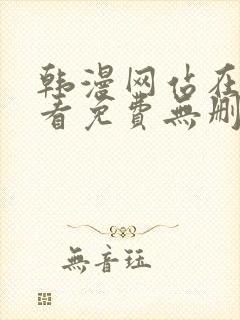 韩漫网佔在
看免费無刪
無音珏